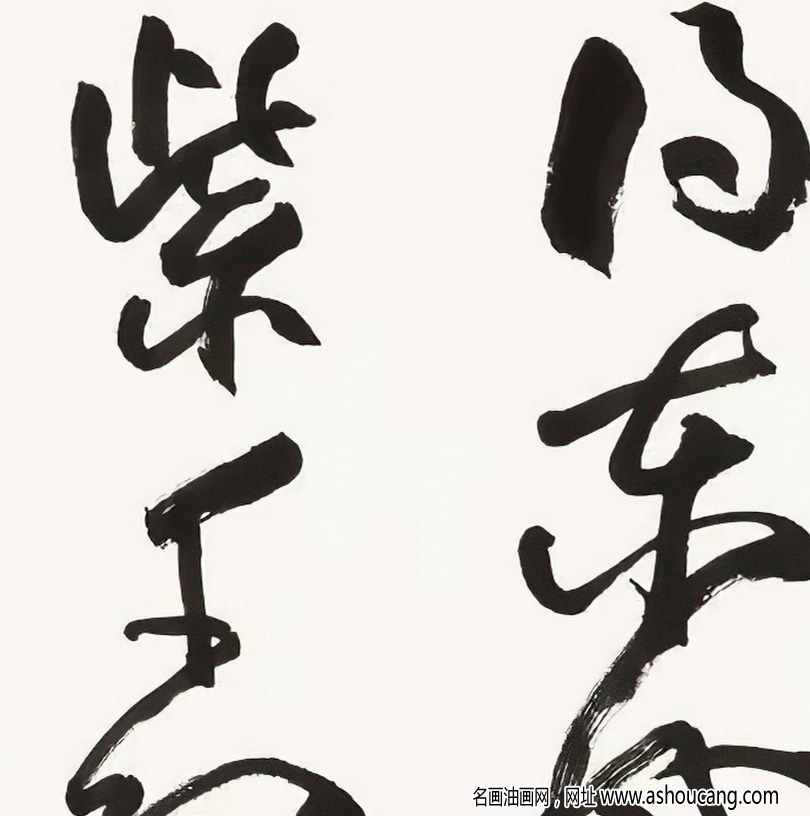 得东
紫千
名画油画网，网址 www.ashoucang.com